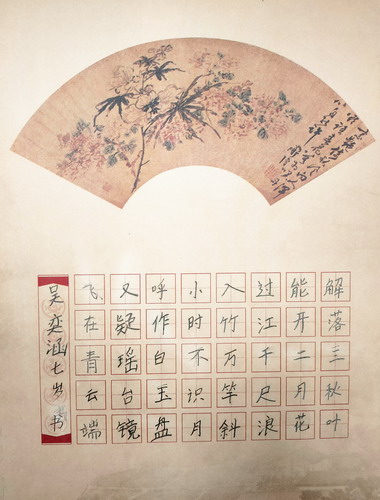 解落三秋叶
能开二月花
过江千尺浪
入竹万竿斜
小时不识月
呼作白玉盘
又疑瑶台镜
飞在青云端
吴奕涵七岁书